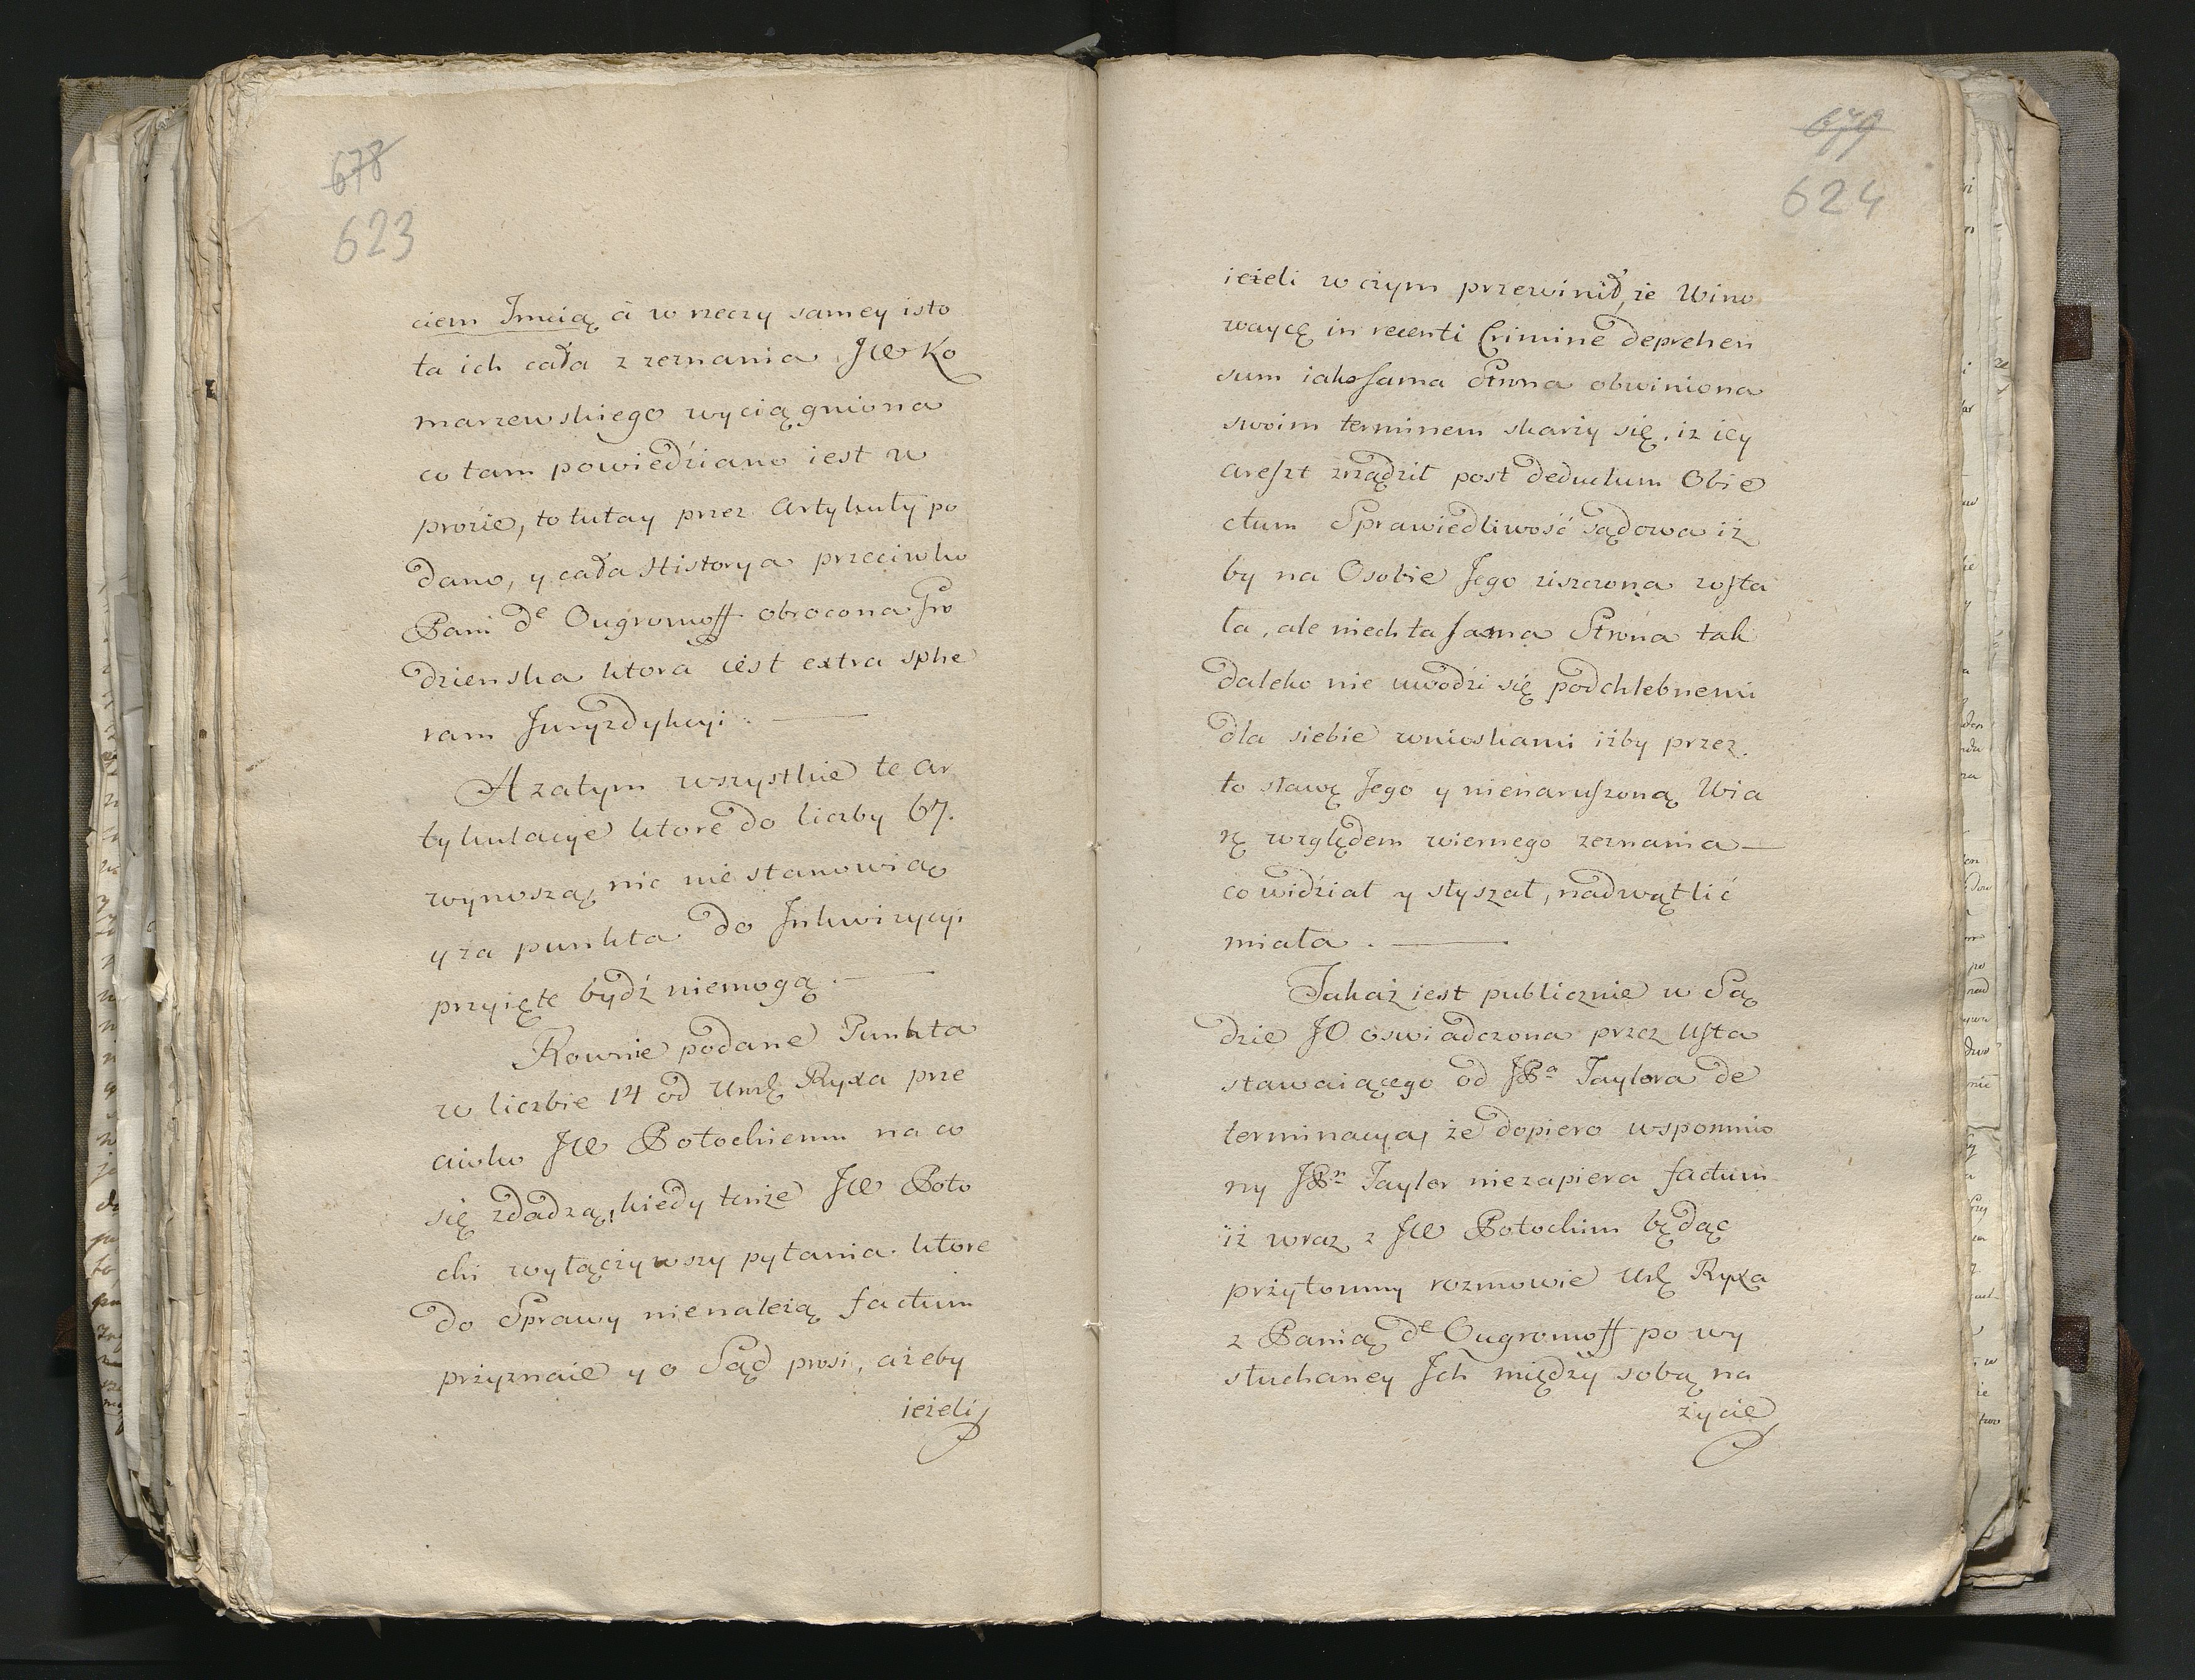 678
623
ciem Jmcią á w rzeczy samey isto
ta ich cała z zeznania JW Ko
marzewskiego wyciągniona
co tam powiedziano iest w
prozie, to tutay przez Artykuły po
dano, y cała Historya przeciwko
Pani de Ougromoff obrocona Gro
dzienska ktora iest extra sphe
ram Juryzdykcyi.
A zatym wszystkie te ar
tykulacye ktore do liczby 67.
wynoszą, nic nie stanowią
y za punkta do Jnkwizycyi
przyięte bydź niemogą.
Rownie podane Punkta
w liczbie 14 od Urodź Ryxa prze
ciwko JW Potockiemu na co
się zdadzą, kiedy tenże JW Poto
cki wyłączywszy pytania ktore
do Sprawy nienależą factum
przyznaie y o Sąd prosi, ażeby
ieżeli
679
624
ieżeli w czym przewinił, że Wino
waycę in recenti Crimine deprehen
sum iako sama Strona obwiniona
swoim terminem skarzy się, iż iey
areszt zrządził post deductum Obie
ctum Sprawiedliwość sądowa iż
by na Osobie Jego ziszczona zosta
ła, ale niech ta sama Strona tak
daleko nie uwodzi się podchlebnemi
dla siebie wnioskami iżby przez
to sławę Jego y nienaruszoną Wia
rę względem wiernego zeznania
co widział y słyszał, nadwątlić
miała.
Takaż iest publicznie w Są
dzie JO oswiadczona przez Usta
stawaiącego od JPa Taylora de
terminacya, że dopiero wspomnio
ny JPn Taylor niezapiera factum
iż wraz z JW Potockim będąc
przytomny rozmowie Ur Ryxa
z Panią de Ougromoff po wy
słuchaney Jch między sobą na
życie